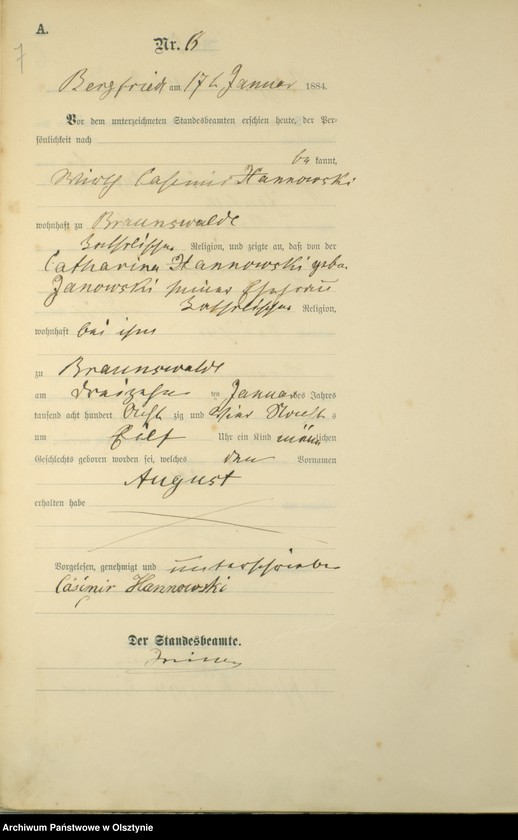 A.
7
Nr. 6
Bergfriede am 17t Januar 1884.
Vor dem unterzeichneten Standesbeamten erschien heute, der Per-
sönlichkeit nach
bekannt,
Wirth Casimir Hannowski
wohnhaft zu Braunswalde
Katholischer Religion, und zeigte an, daß von der
Catharina Hannowski geb.
Janowski seiner Ehefrau
Katholischer Religion,
wohnhaft bei ihm
zu Braunswalde
am dreizehn ten Januar des Jahres
tausend acht hundert Acht zig und Vier
um Eilf Uhr ein Kind männlichen
Geschlechts geboren worden sei, welches den Vornamen
August
erhalten habe
Vorgelesen, genehmigt und unterschrieben
Casimir Hannowski
Der Standesbeamte.
Archiwum Państwowe w Olsztynie